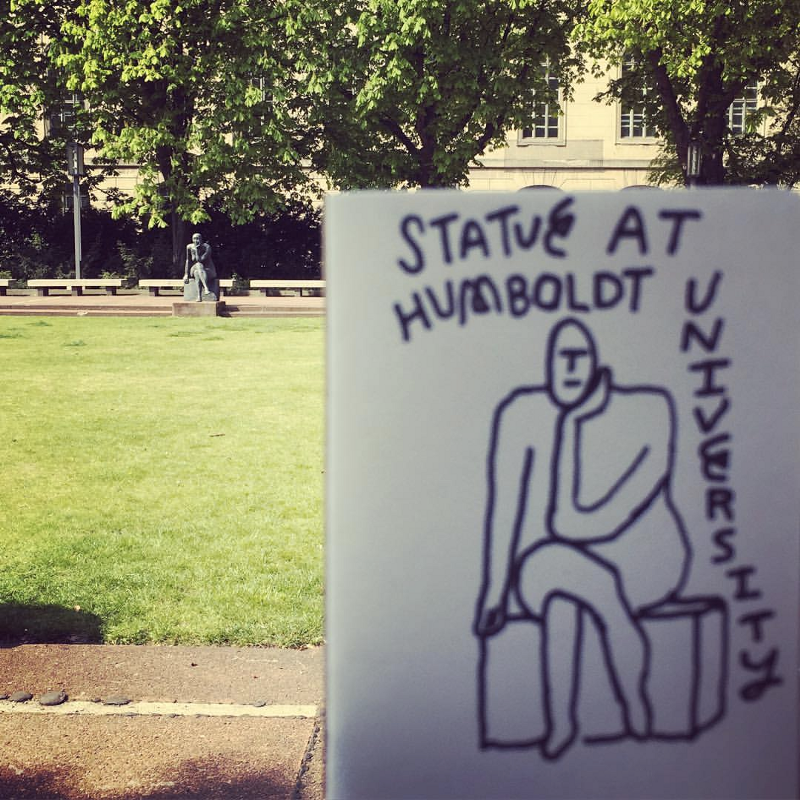 STATUE AT
HUMBOLDT
UNIVERSITY